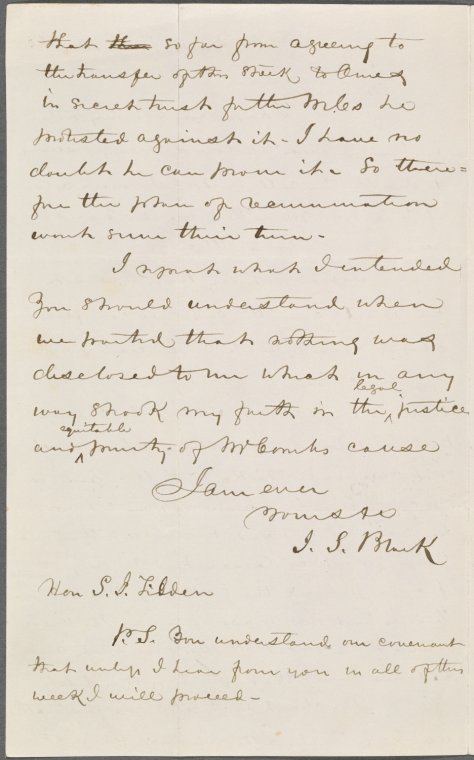 that the so far from agreeing to
the transfer of this stock to Ames
in secret trust for the McCs he
protested against it - I have no
doubt he can prove it. So there=
fore the plan of recrimination
wont serve their turn -
I repeat what I intended
you should understand when
we parted that nothing was
disclosed to me which in any
way shook my faith in the legal justice
and equitable purity of McCombs cause
I am ever
yours &c
J. S. Black
Hon S. J. Tilden
P.S. You understand our covenant
that unless I hear from you in all of this
week I will proceed -